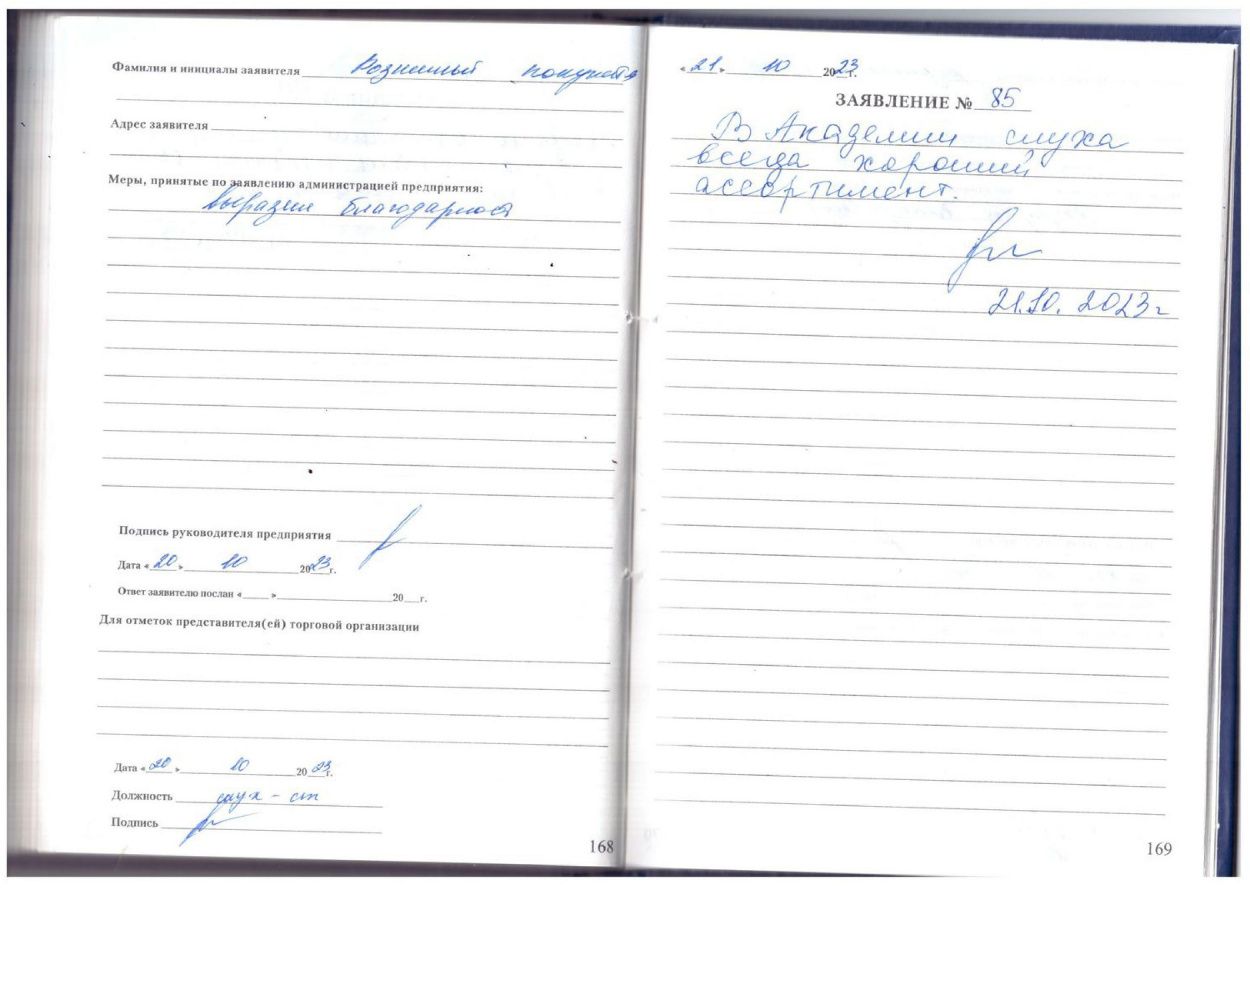 Фамилия и инициалы заявителя Розничный покупатель
Адрес заявителя
Меры, принятые по заявлению администрацией предприятия:
выразили благодарность
Подпись руководителя предприятия
Дата «20» 10 2023 г.
Ответ заявителю послан «     » 20   г.
Для отметок представителя(ей) торговой организации
Дата «20» 10 2023 г.
Должность
Подпись
168
«21» 10 2023 г.
ЗАЯВЛЕНИЕ № 85
В Академии слуха
всегда хороший
ассортимент.
21.10.2023г
169